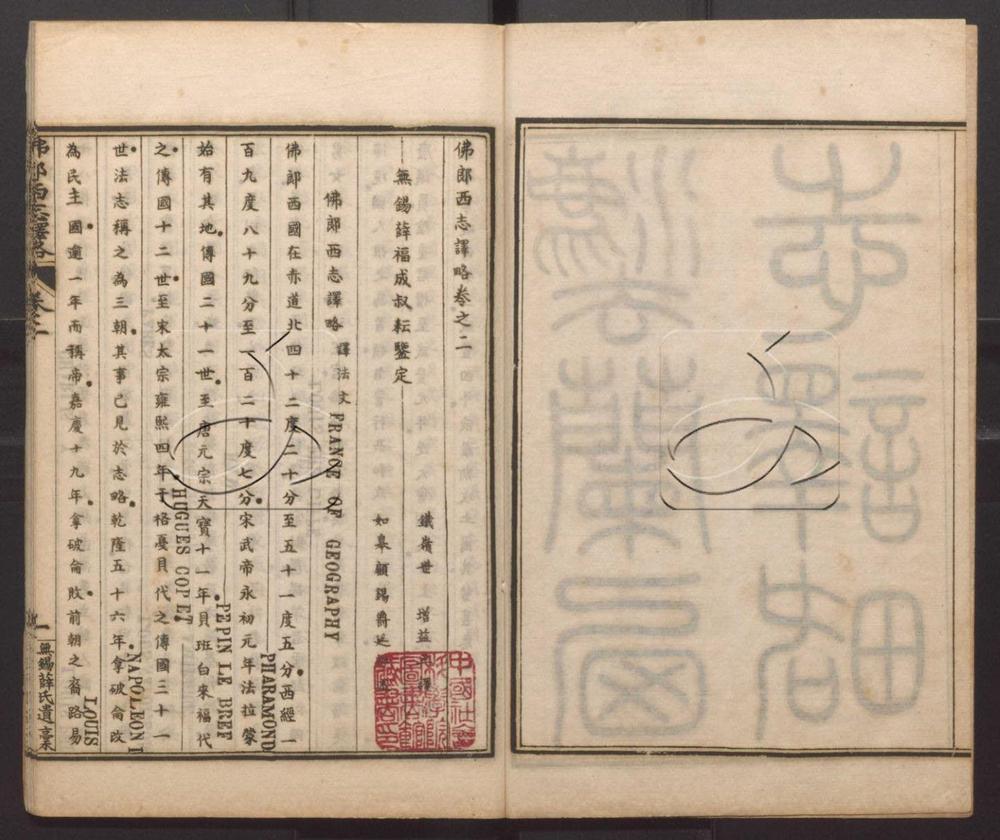 佛郎西志譯略卷之二
無錫薛福成叔耘鑒定
鐵嶺世 增益
如皋顧錫爵延
佛郎西志譯略 譯法文 FRANCE OF GEOGRAPHY
佛郎西國在赤道北四十二度二十分至五十一度五分西經一
百九度八十九分至一百二十度七分宋武帝永初元年法拉蒙 PHARAMOND
始有其地傳國二十一世至唐元宗天寶十一年貝班白來福代 PEPIN LE BREF
之傳國十二世至宋太宗雍熙四年于格戞貝代之傳國三十一 HUGUES COPET
世法志稱之為三朝其事已見於志略乾隆五十六年拿破侖改 NAPOLEON I
為民主國逾一年而稱帝嘉慶十九年拿破侖敗前朝之裔路易 LOUIS
卷二
一
無錫薛氏遺稾